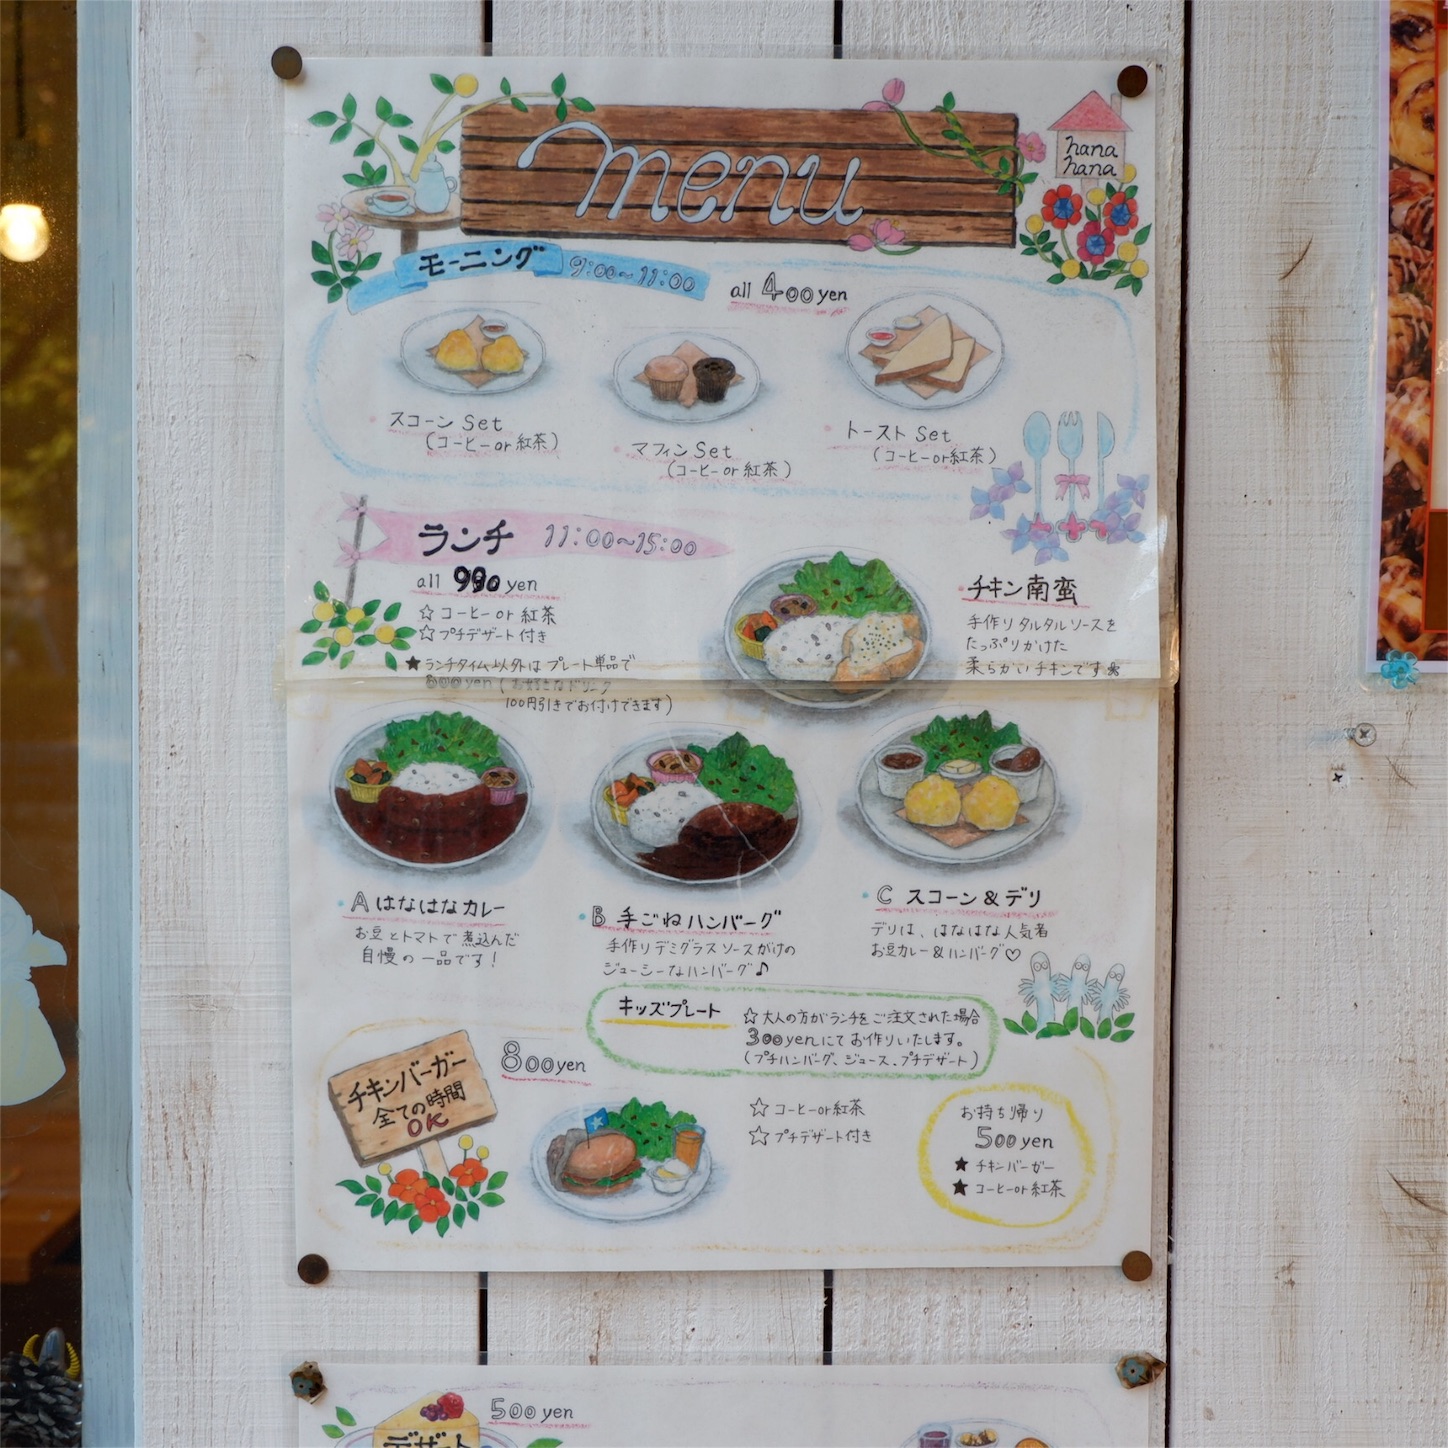 menu
hana
hana
モーニング 9:00~11:00
all 400 yen
スコーン Set
(コーヒー or 紅茶)
マフィン Set
(コーヒー or 紅茶)
トースト Set
(コーヒー or 紅茶)
ランチ 11:00~15:00
all 990 yen
☆ コーヒー or 紅茶
☆ プチデザート付き
★ ランチタイム以外は プレート単品で
800 yen (お好きなドリンク
100円引きでお付けできます)
チキン南蛮
手作りタルタルソースを
たっぷりかけた
柔らかいチキンです
A はなはなカレー
お豆とトマトで煮込んだ
自慢の一品です!
B 手ごねハンバーグ
手作りデミグラスソースがけの
ジューシーなハンバーグ♪
C スコーン&デリ
デリは、はなはな人気者
お豆カレー&ハンバーグ♡
キッズプレート
☆ 大人の方がランチをご注文された場合
300yenにてお作りいたします。
(プチハンバーグ、ジュース、プチデザート)
チキンバーガー
全ての時間
OK
800 yen
☆ コーヒー or 紅茶
☆ プチデザート付き
お持ち帰り
500 yen
★ チキンバーガー
★ コーヒー or 紅茶
500 yen
デザート